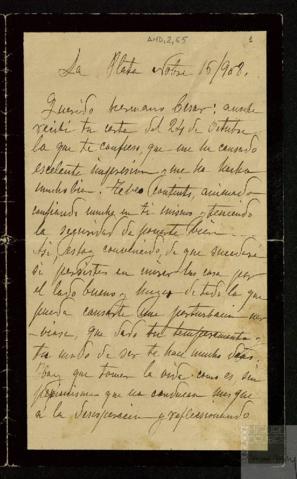 AMD, 2, 65
1
La Plata Nobre 15/902.
Querido hermano Cesar: anoche
recibi tu carta del 24 de Octubre
la que te confieso, que me ha causado
escelente impresion y me ha hecho
mucho bien. Te veo contento, animado
confiando mucho en ti mismo y teniendo
la seguridad de ponerte bien.
Asi estoy convencido, de que sucederá
si persistes en mirar las cosas por
el lado bueno y huyes de todo lo que
pueda causarte una perturbacion ner
viosa, que dado tu temperamento y
tu modo de ser te hace mucho daño.
Hay que tomar la vida como es sin
pesimismos que no conducen mas que
á la desesperacion y reflexionando